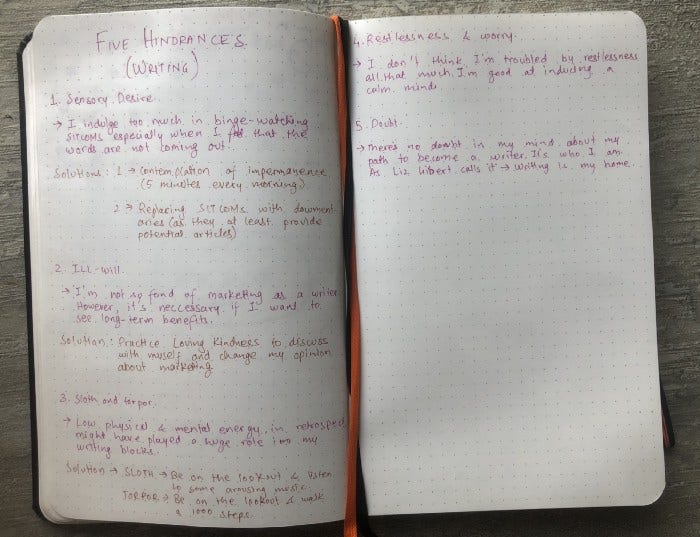 FIVE HINDRANCES
(WRITING)
1. Sensory Desire
→ I indulge too much in binge-watching
SITCOMS especially when I that the
words are not coming out.
Solutions: 1 → Contemplation of impermanence
(5 minutes every morning.)
2 → Replacing SITCOMS with docment
aries (as they at least provide
potential articles)
2. ILL-will.
→ I'm not so fond of marketing as a writer
However, it's neccessary if I want to
see long-term benefits.
Solution: Practice Loving Kindness to discuss
with myself and change my opinion
about marketing
3. Sloth and torpor.
→ Low physical & mental energy, in retrospect
might have played a huge role in my
writing blocks.
Solution → SLOTH → Be on the lookout & listen
to some arousing music.
TORPOR → Be on the lookout & walk
a 1000 steps.
4. Restlessness & worry.
→ I don't think I'm troubled by restlessness
all that much. I'm good at inducing a
calm mind.
5. Doubt.
→ There's no doubt in my mind about my
path to become a writer. It's who I am.
As Liz Gilbert calls it → writing is my home.